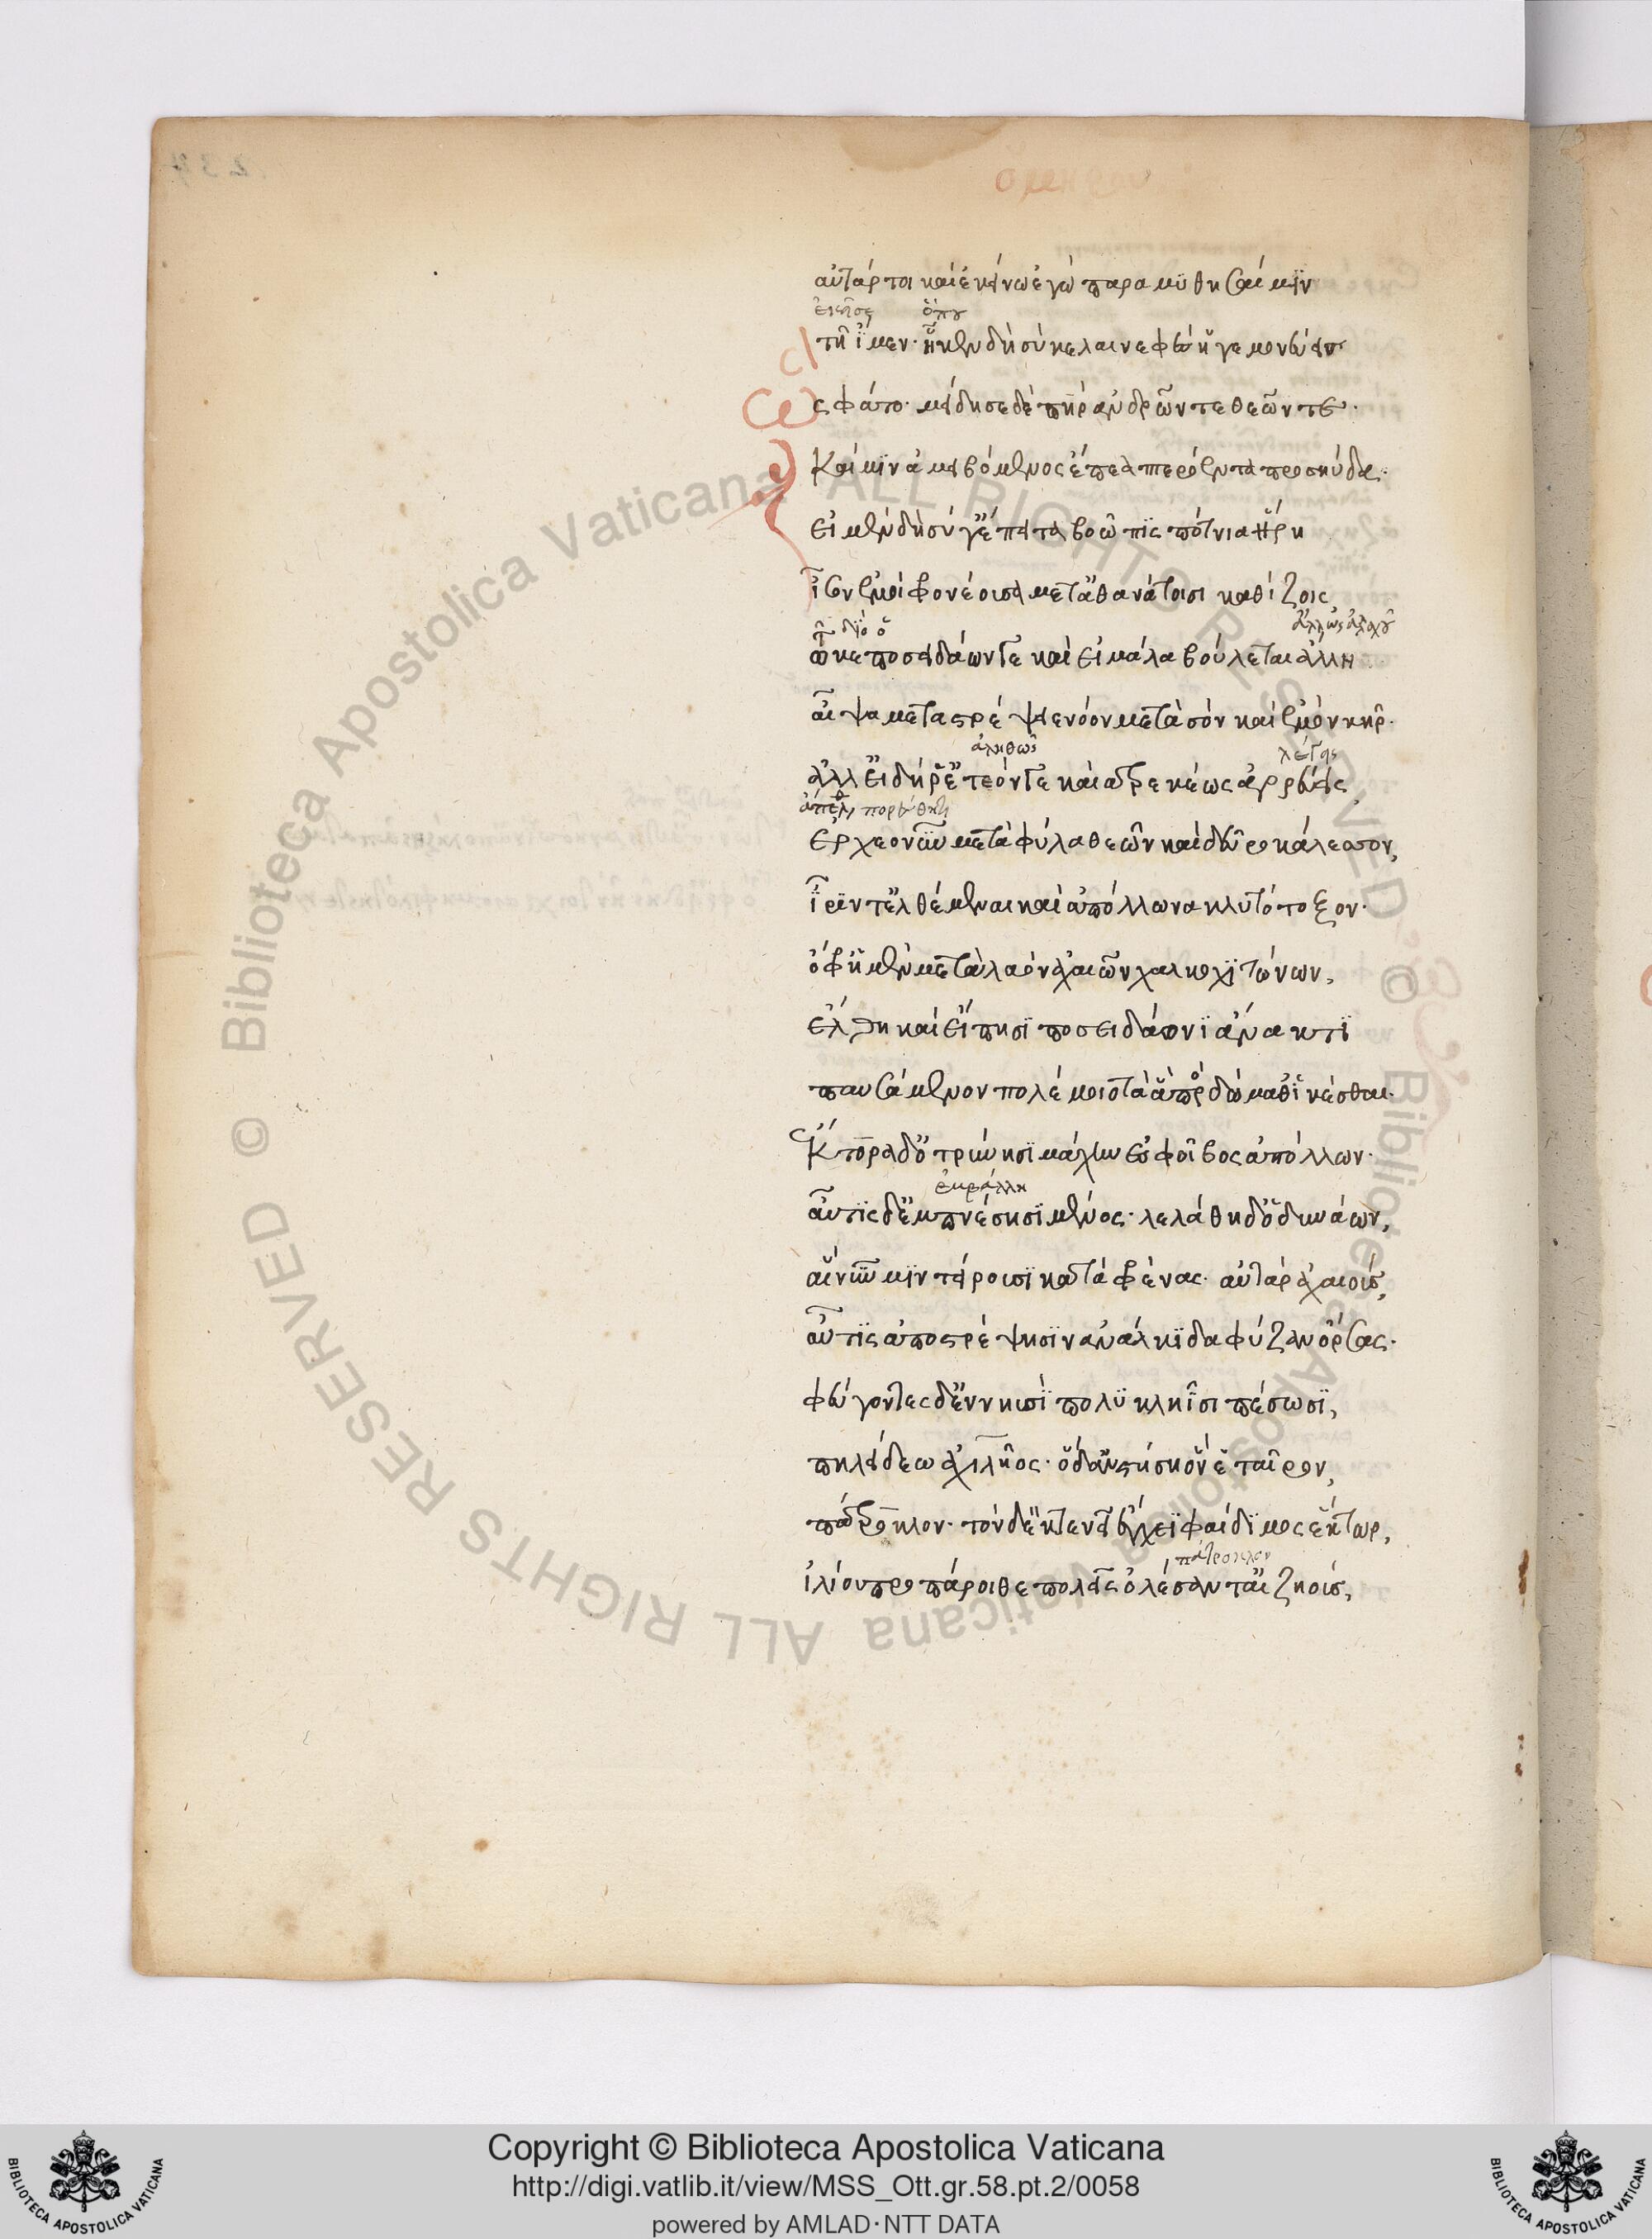 αὐτάρ τοι καὶ ἐκείνω ἐγὼ παραμυθησαίμην
ἐκεῖσε ὅπου
τῆ ἴμεν· ἧ κεν δὴ σὺ κελαινεφὲς ἡγεμονεύεις
Ὣς φάτο· μείδησε δὲ πηρ ἀνδρῶν τε θεῶν τε·
Καί μιν ἀμειβόμενος ἔπεα πτερόεντα προσηύδα·
εἰ μὲν δὴ σύ γ' ἔπειτα βοῶπις πότνια Ἥρη
ἶσον ἐμοὶ φρονέουσα μετ' ἀθανάτοισι καθίζοις
ἄλλως ἀλλαχοῦ
τῶ κε ποσειδάων γε καὶ εἰ μάλα βούλεται ἄλλη
αἶψα μεταστρέψειε νόον μετὰ σὸν καὶ ἐμὸν κῆρ·
ἀληθῶς λέγεις
ἀλλ' εἰ δή ῥ' ἐτεόν γε καὶ ἀτρεκέως ἀγορεύεις
ἄπελθε πορεύθητι
ἔρχεο νῦν μετὰ φύλα θεῶν καὶ δεῦρο κάλεσσον,
ἶρίν τ' ἐλθέμεναι καὶ ἀπόλλωνα κλυτότοξον·
ὄφρ' ἡ μὲν μετὰ λαὸν ἀχαιῶν χαλκοχιτώνων,
ἔλθη καὶ εἴπησι ποσειδάωνι ἄνακτι
παυσάμενον πολέμοιο τὰ ἃ πρὸς δώμαθ' ἱκέσθαι·
Ἕκτορα δ' ὀτρύνησι μάχην ἐς φοῖβος ἀπόλλων·
ἐμβάλλη
αὖτις δ' ἐμπνέσησι μένος· λελάθη δ' ὀδυνάων,
αἳ νῦν μιν τείρουσι κατὰ φρένας· αὐτὰρ ἀχαιούς,
αὖτις ἀποστρέψησιν ἀνάλκιδα φύζαν ὄρσας·
φεύγοντες δ' ἐν νηυσὶ πολυκλήϊσι πέσωσι,
πηλείδεω ἀχιλῆος· ὁ δ' ἀνστήσῃ ὃν ἑταῖρον,
πάτροκλον· τὸν δὲ κτενεῖ ἔγχεϊ φαίδιμος ἕκτωρ,
πάτροκλον
ἰλίου προπάροιθε πολεῖς ὀλέσαντ' αἰζηούς,
Copyright © Biblioteca Apostolica Vaticana
http://digi.vatlib.it/view/MSS_Ott.gr.58.pt.2/0058
powered by AMLAD·NTT DATA